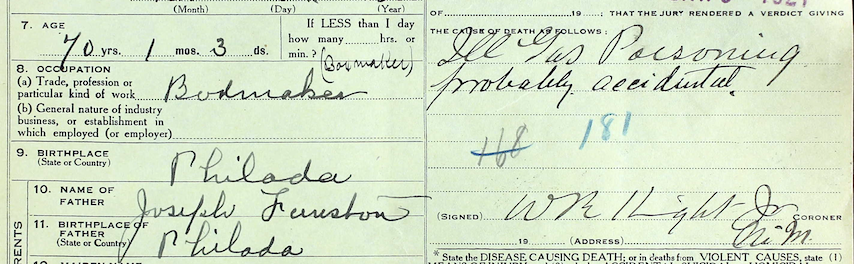 (Month) (Day) (Year)
7. AGE
70 yrs. 1 mos. 3 ds.
If LESS than 1 day
how many hrs. or
min. ?
(Boxmaker)
8. OCCUPATION
(a) Trade, profession or
particular kind of work
Bodmaker
(b) General nature of industry
business, or establishment in
which employed (or employer)
9. BIRTHPLACE
(State or Country)
Philada
10. NAME OF
FATHER
Joseph
11. BIRTHPLACE OF
FATHER
(State or Country)
Philada
OF 19 ; THAT THE JURY RENDERED A VERDICT GIVING
THE CAUSE OF DEATH AS FOLLOWS :
Ill Gas Poisoning
probably accidental.
168 181
(SIGNED) W R Knight Jr CORONER
19 (ADDRESS)
* State the DISEASE CAUSING DEATH; or in deaths from VIOLENT CAUSES, state (1)